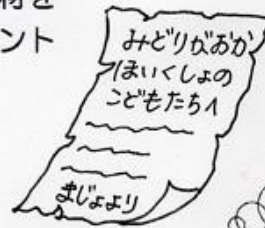 材を
ント
みどりがおか
ほいくしょの
こどもたちへ
まじょより